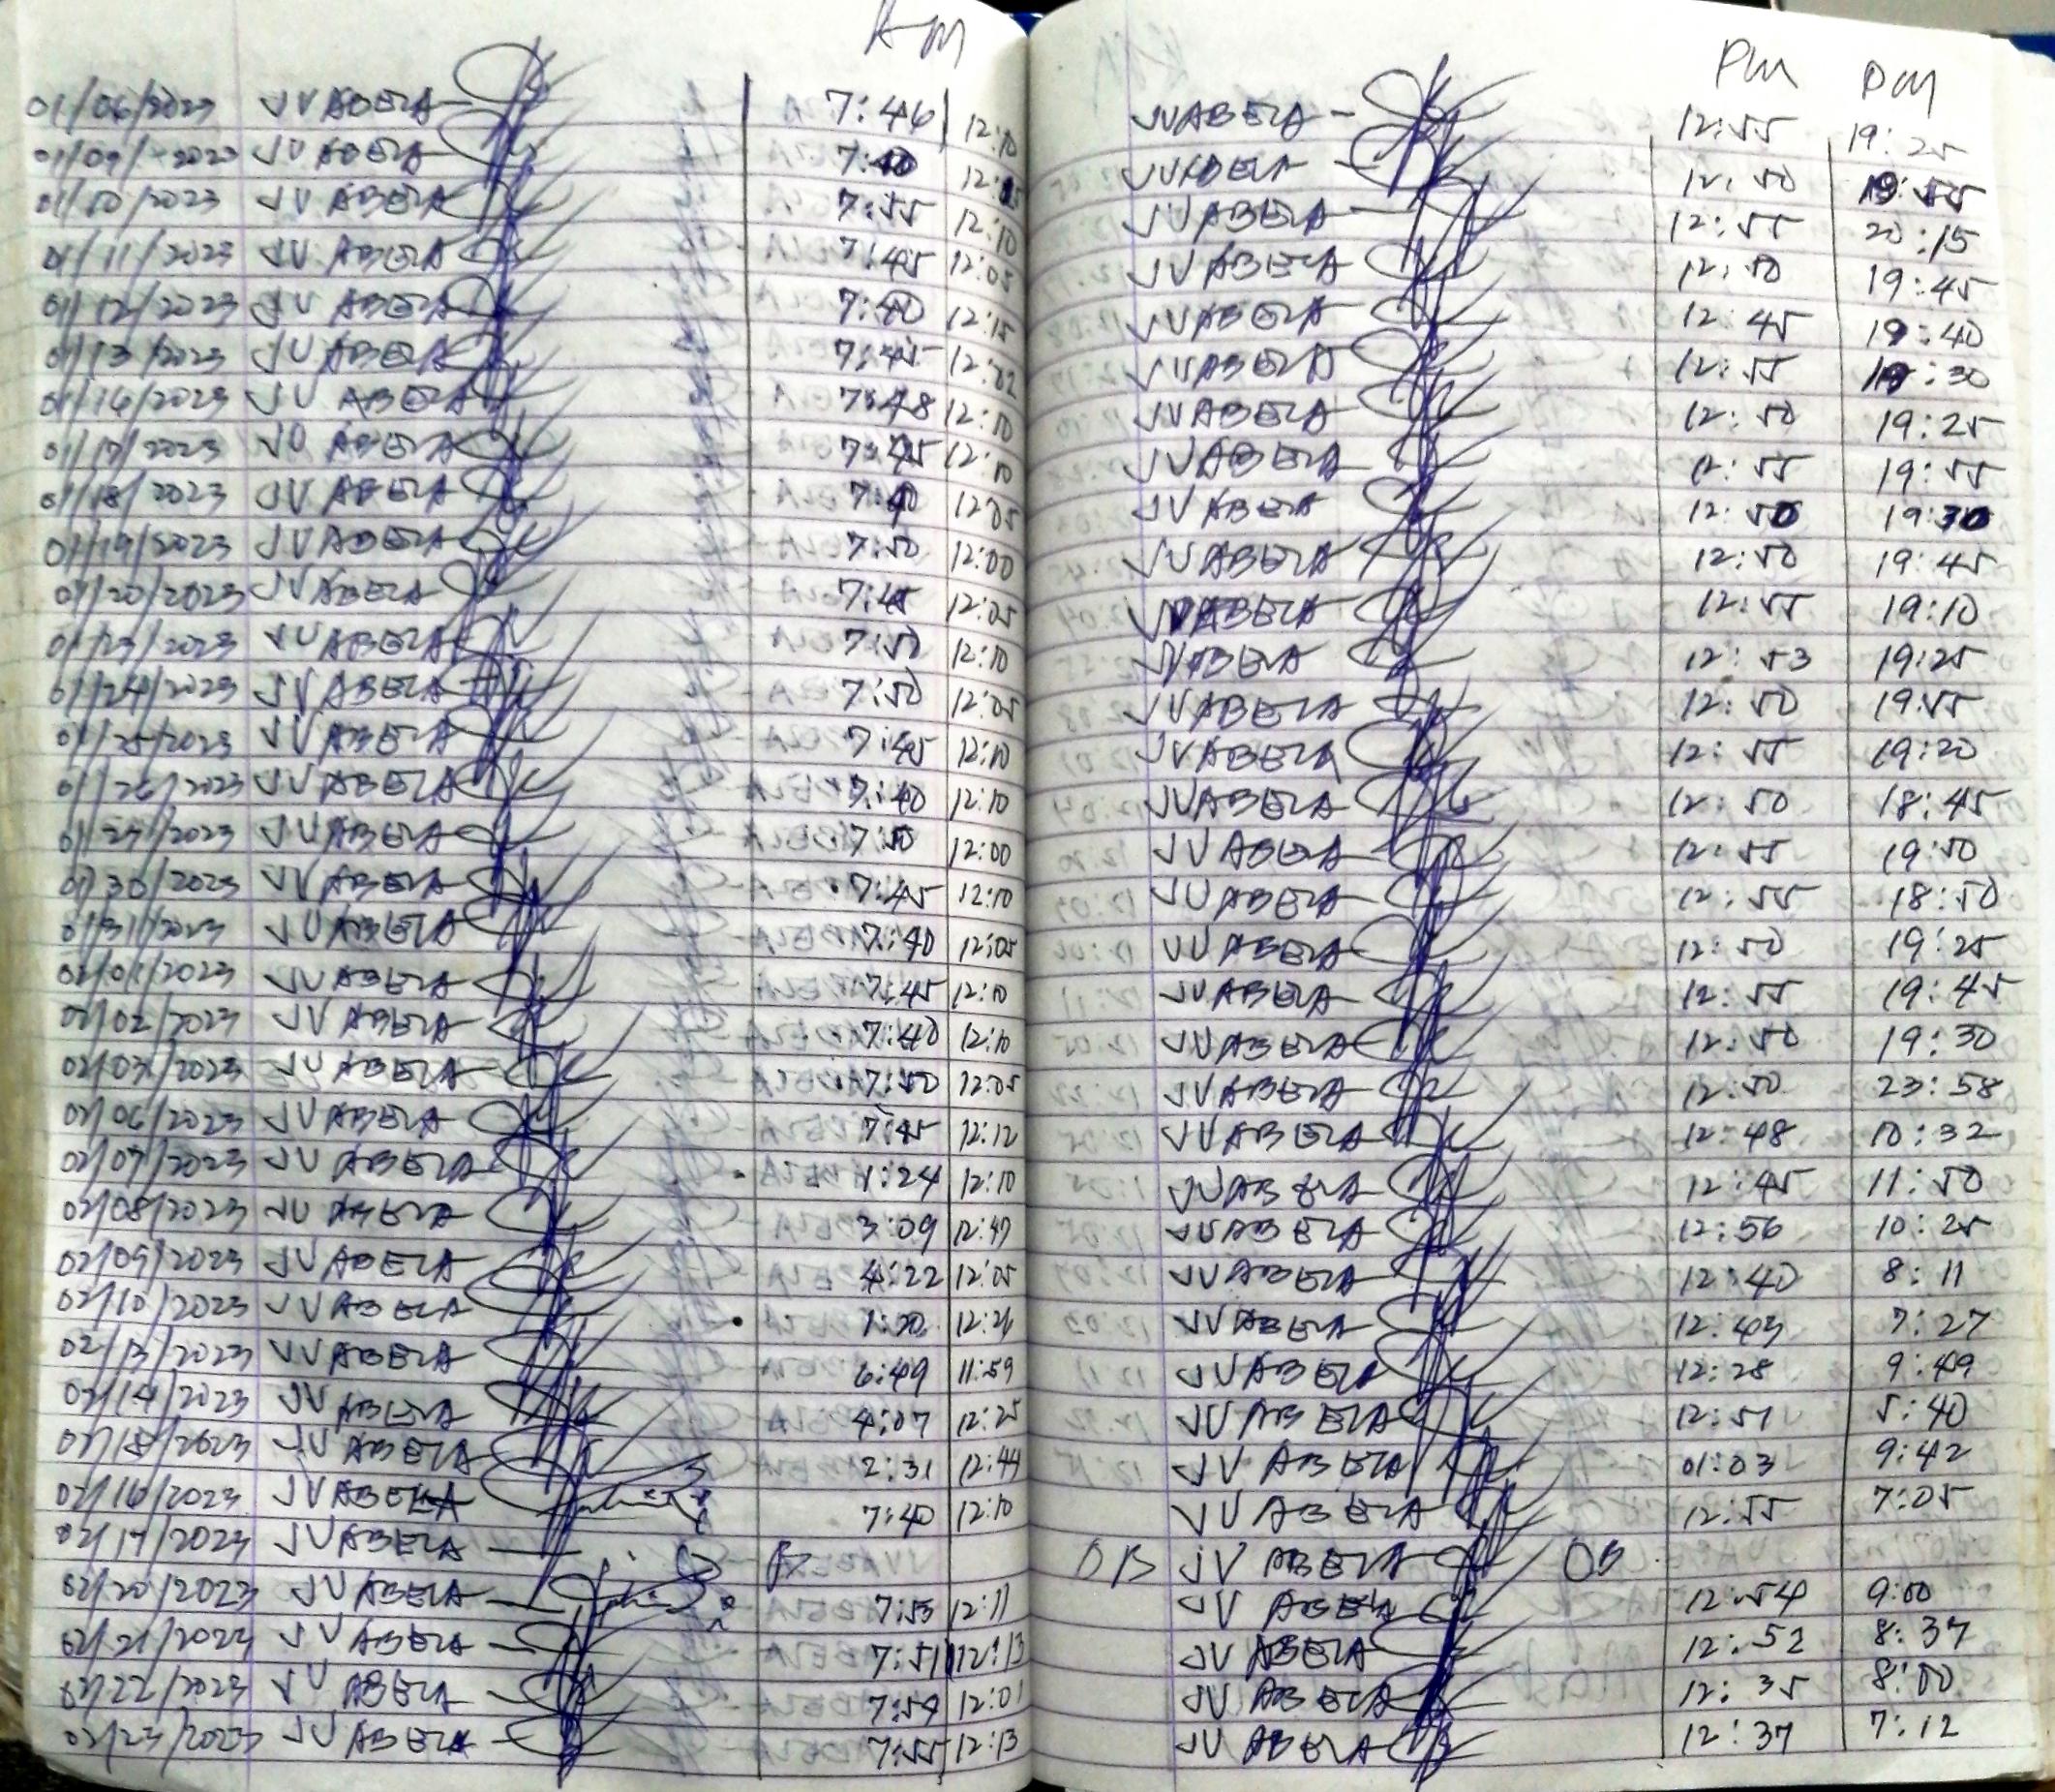 AM
PM PM
01/06/2023 JV ABELA 7:46 12:10 JV ABELA 12:55 19:25
01/09/2023 JV ABELA 7:40 JV ABELA 12:50 19:55
01/10/2023 JV ABELA 7:55 12:10 JV ABELA 12:55 20:15
01/11/2023 JV ABELA 7:45 12:05 JV ABELA 12:50 19:45
01/12/2023 JV ABELA 7:40 12:15 JV ABELA 12:45 19:40
01/13/2023 JV ABELA 7:45 12:02 JV ABELA 12:55 19:30
01/16/2023 JV ABELA 7:48 12:10 JV ABELA 12:50 19:25
01/17/2023 JV ABELA 7:45 12:10 JV ABELA 12:55 19:55
01/18/2023 JV ABELA 7:40 12:05 JV ABELA 12:50 19:30
01/19/2023 JV ABELA 7:50 12:00 JV ABELA 12:50 19:45
01/20/2023 JV ABELA 7:45 12:05 JV ABELA 12:55 19:10
01/23/2023 JV ABELA 7:50 12:10 JV ABELA 12:53 19:25
01/24/2023 JV ABELA 7:50 12:05 JV ABELA 12:50 19:55
01/25/2023 JV ABELA 7:45 12:10 JV ABELA 12:55 19:20
01/26/2023 JV ABELA 7:40 12:10 JV ABELA 12:50 18:45
01/27/2023 JV ABELA 7:50 12:00 JV ABELA 12:55 19:50
01/30/2023 JV ABELA 7:45 12:10 JV ABELA 12:55 18:50
01/31/2023 JV ABELA 7:40 12:05 JV ABELA 12:50 19:25
02/01/2023 JV ABELA 7:45 12:10 JV ABELA 12:55 19:45
02/02/2023 JV ABELA 7:40 12:10 JV ABELA 12:50 19:30
02/03/2023 JV ABELA 7:50 12:05 JV ABELA 12:50 23:58
02/06/2023 JV ABELA 7:45 12:12 JV ABELA 12:48 10:32
02/07/2023 JV ABELA 1:24 12:10 JV ABELA 12:45 11:50
02/08/2023 JV ABELA 3:09 12:47 JV ABELA 12:56 10:25
02/09/2023 JV ABELA 4:22 12:05 JV ABELA 12:40 8:11
02/10/2023 JV ABELA JV ABELA 12:43 7:27
02/13/2023 JV ABELA 6:49 11:59 JV ABELA 12:28 9:49
02/14/2023 JV ABELA 4:07 12:25 JV ABELA 12:51 5:40
02/15/2023 JV ABELA 2:31 12:44 JV ABELA 01:03 9:42
02/16/2023 JV ABELA 7:40 12:10 JV ABELA 12:55 7:05
02/17/2023 JV ABELA OB JV ABELA OB
02/20/2023 JV ABELA 7:53 12:11 JV ABELA 12:54 9:00
02/21/2023 JV ABELA 7:51 12:13 JV ABELA 12:52 8:37
02/22/2023 JV ABELA 7:54 12:01 JV ABELA 12:35 8:00
02/23/2023 JV ABELA 7:55 12:13 JV ABELA 12:37 7:12